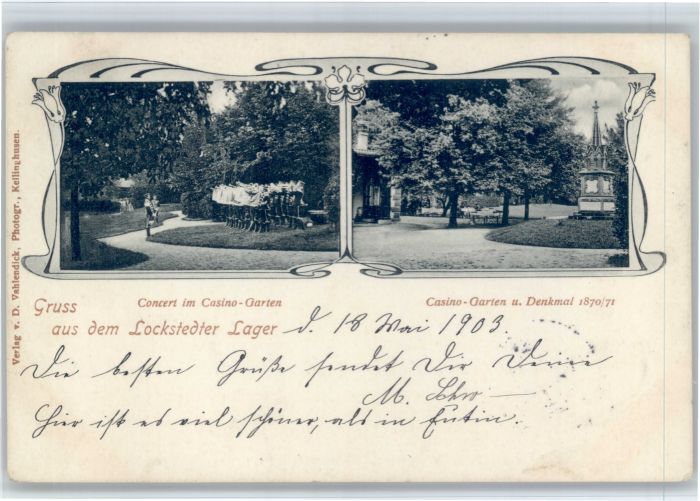 Verlag v. D. Vahlendick, Photogr., Kellinghusen.
Concert im Casino-Garten
Casino-Garten u. Denkmal 1870/71
Gruss
aus dem Lockstedter Lager d. 18 Mai 1903.
Die besten Grüße sendet Dir Deine
M.
Hier ist es viel schöner, als in Eutin.